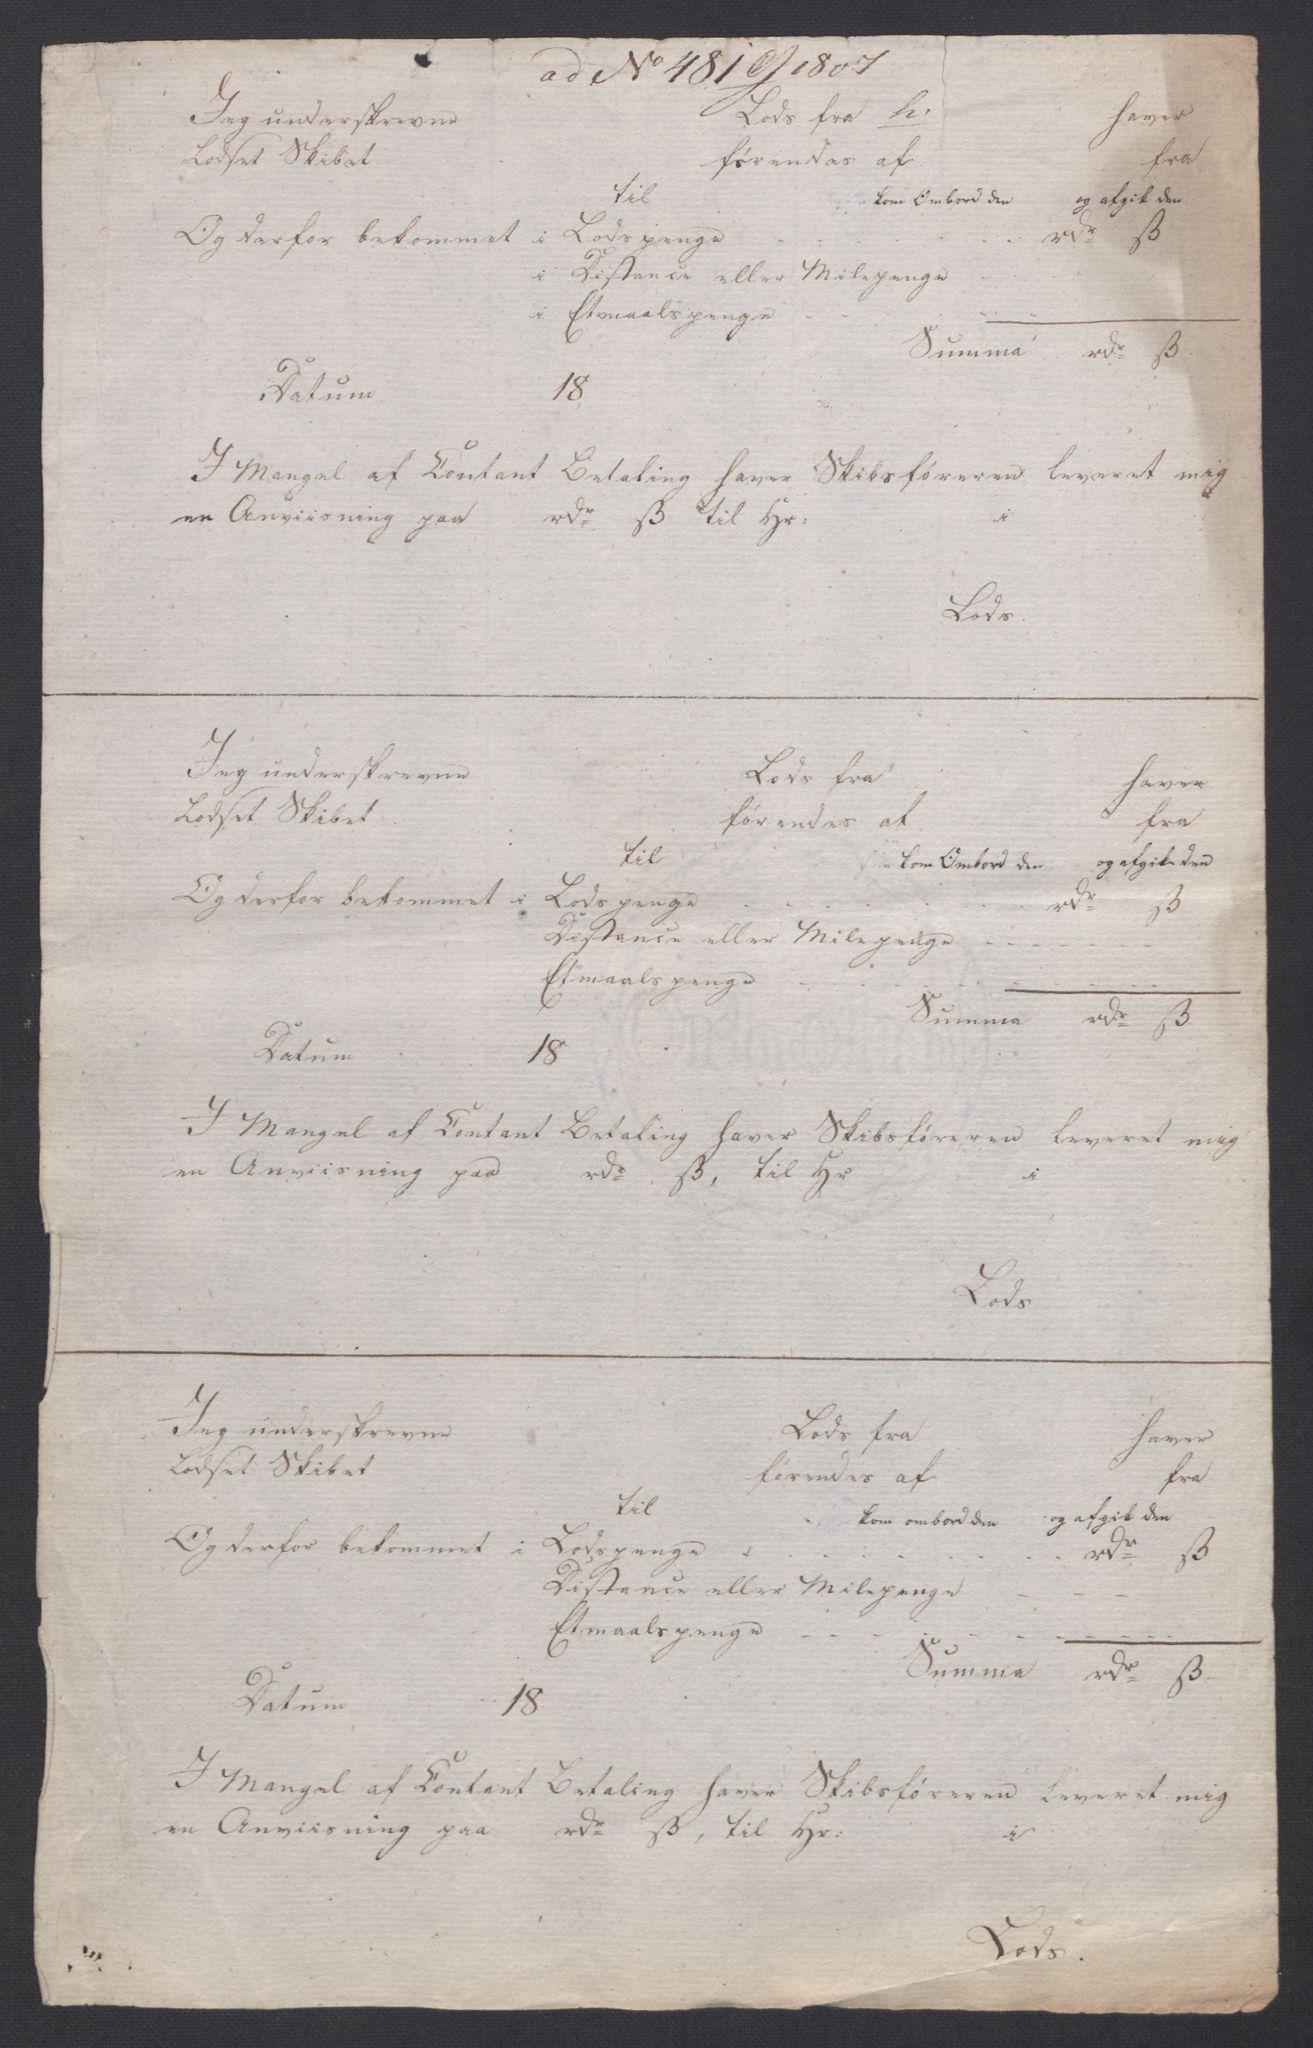 ad No 481 1807
Jeg underskrevne Lods fra h: haver
Lodset Skibet førendes af fra
til kom Ombord den og afgik den
Og derfor bekommet i Lodspenge rdr ß
i Distance eller Milepenge
i Etmaalspenge
Summa rdr ß
Datum 18
I Mangel af Contant Betaling haver Skibsføreren leveret mig
en Anviisning paa rdr ß til Hr: i
Lods.
Jeg underskrevne Lods fra haver
Lodset Skibet førendes af fra
til kom Ombord den og afgik den
Og derfor bekommet i Lodspenge rdr ß
Distance eller Milepenge
Etmaalspenge
Summa rdr ß
Datum 18
I Mangel af Contant Betaling haver Skibsføreren leveret mig
en Anviisning paa rdr ß, til Hr i
Lods
Jeg underskrevne Lods fra haver
Lodset Skibet førendes af fra
til kom ombord den og afgik den
Og derfor bekommet i Lodspenge rdr ß
Distance eller Milepenge
Etmaalspenge
Summa rdr ß.
Datum 18
I Mangel af Contant Betaling haver Skibsføreren leveret mig
en Anviisning paa rdr ß, til Hr: i
Lods.